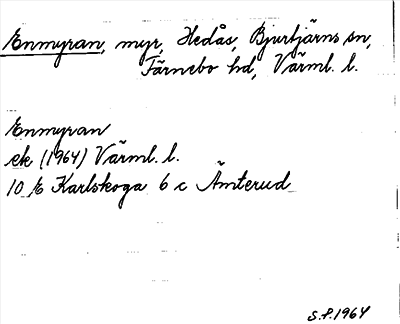 Enmyran, myr, Hedås, Bjurtjärns sn,
Färnebo hd, Värml. l.
Enmyran
ek (1964) Värml. l.
10 E Karlskoga 6 c Ämterud
S.F. 1964